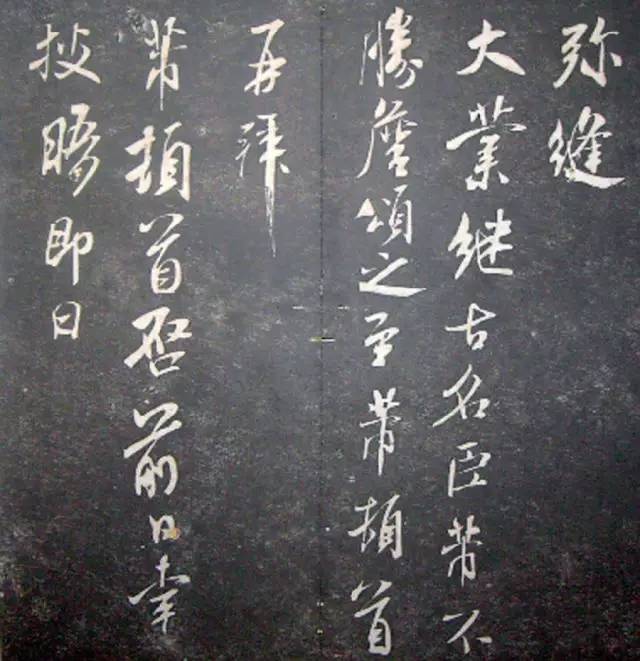 弥缝
大業继古名臣芾不
勝詹頌之至芾頓首
再拜
芾頓首啓前日幸
披晤即日